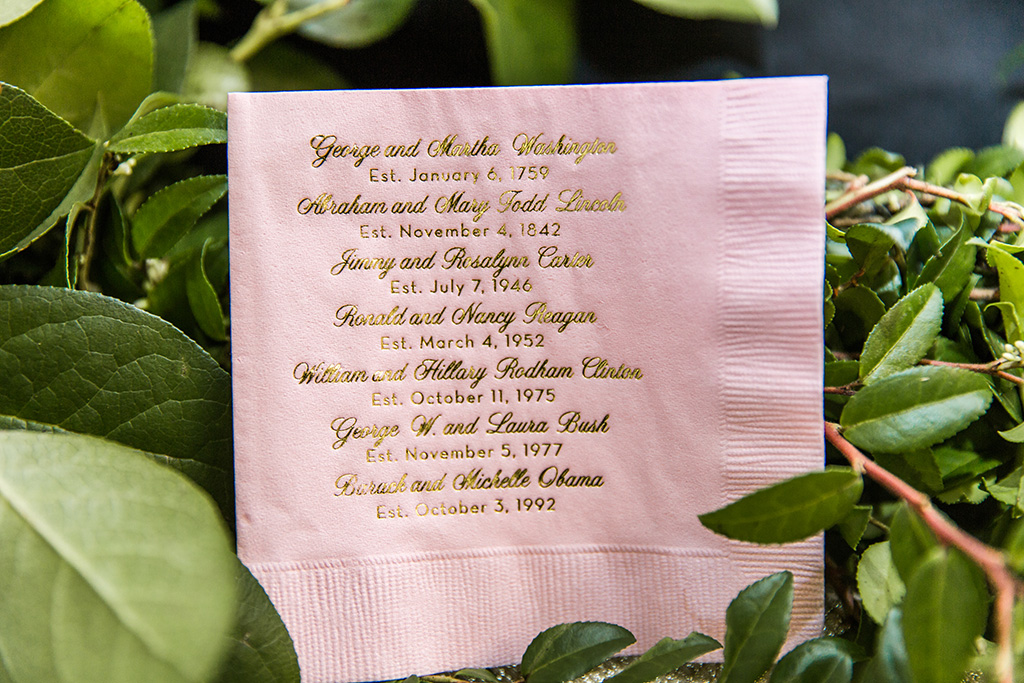 George and Martha Washington
Est. January 6, 1759
Abraham and Mary Todd Lincoln
Est. November 4, 1842
Jimmy and Rosalynn Carter
Est. July 7, 1946
Ronald and Nancy Reagan
Est. March 4, 1952
William and Hillary Rodham Clinton
Est. October 11, 1975
George W. and Laura Bush
Est. November 5, 1977
Barack and Michelle Obama
Est. October 3, 1992